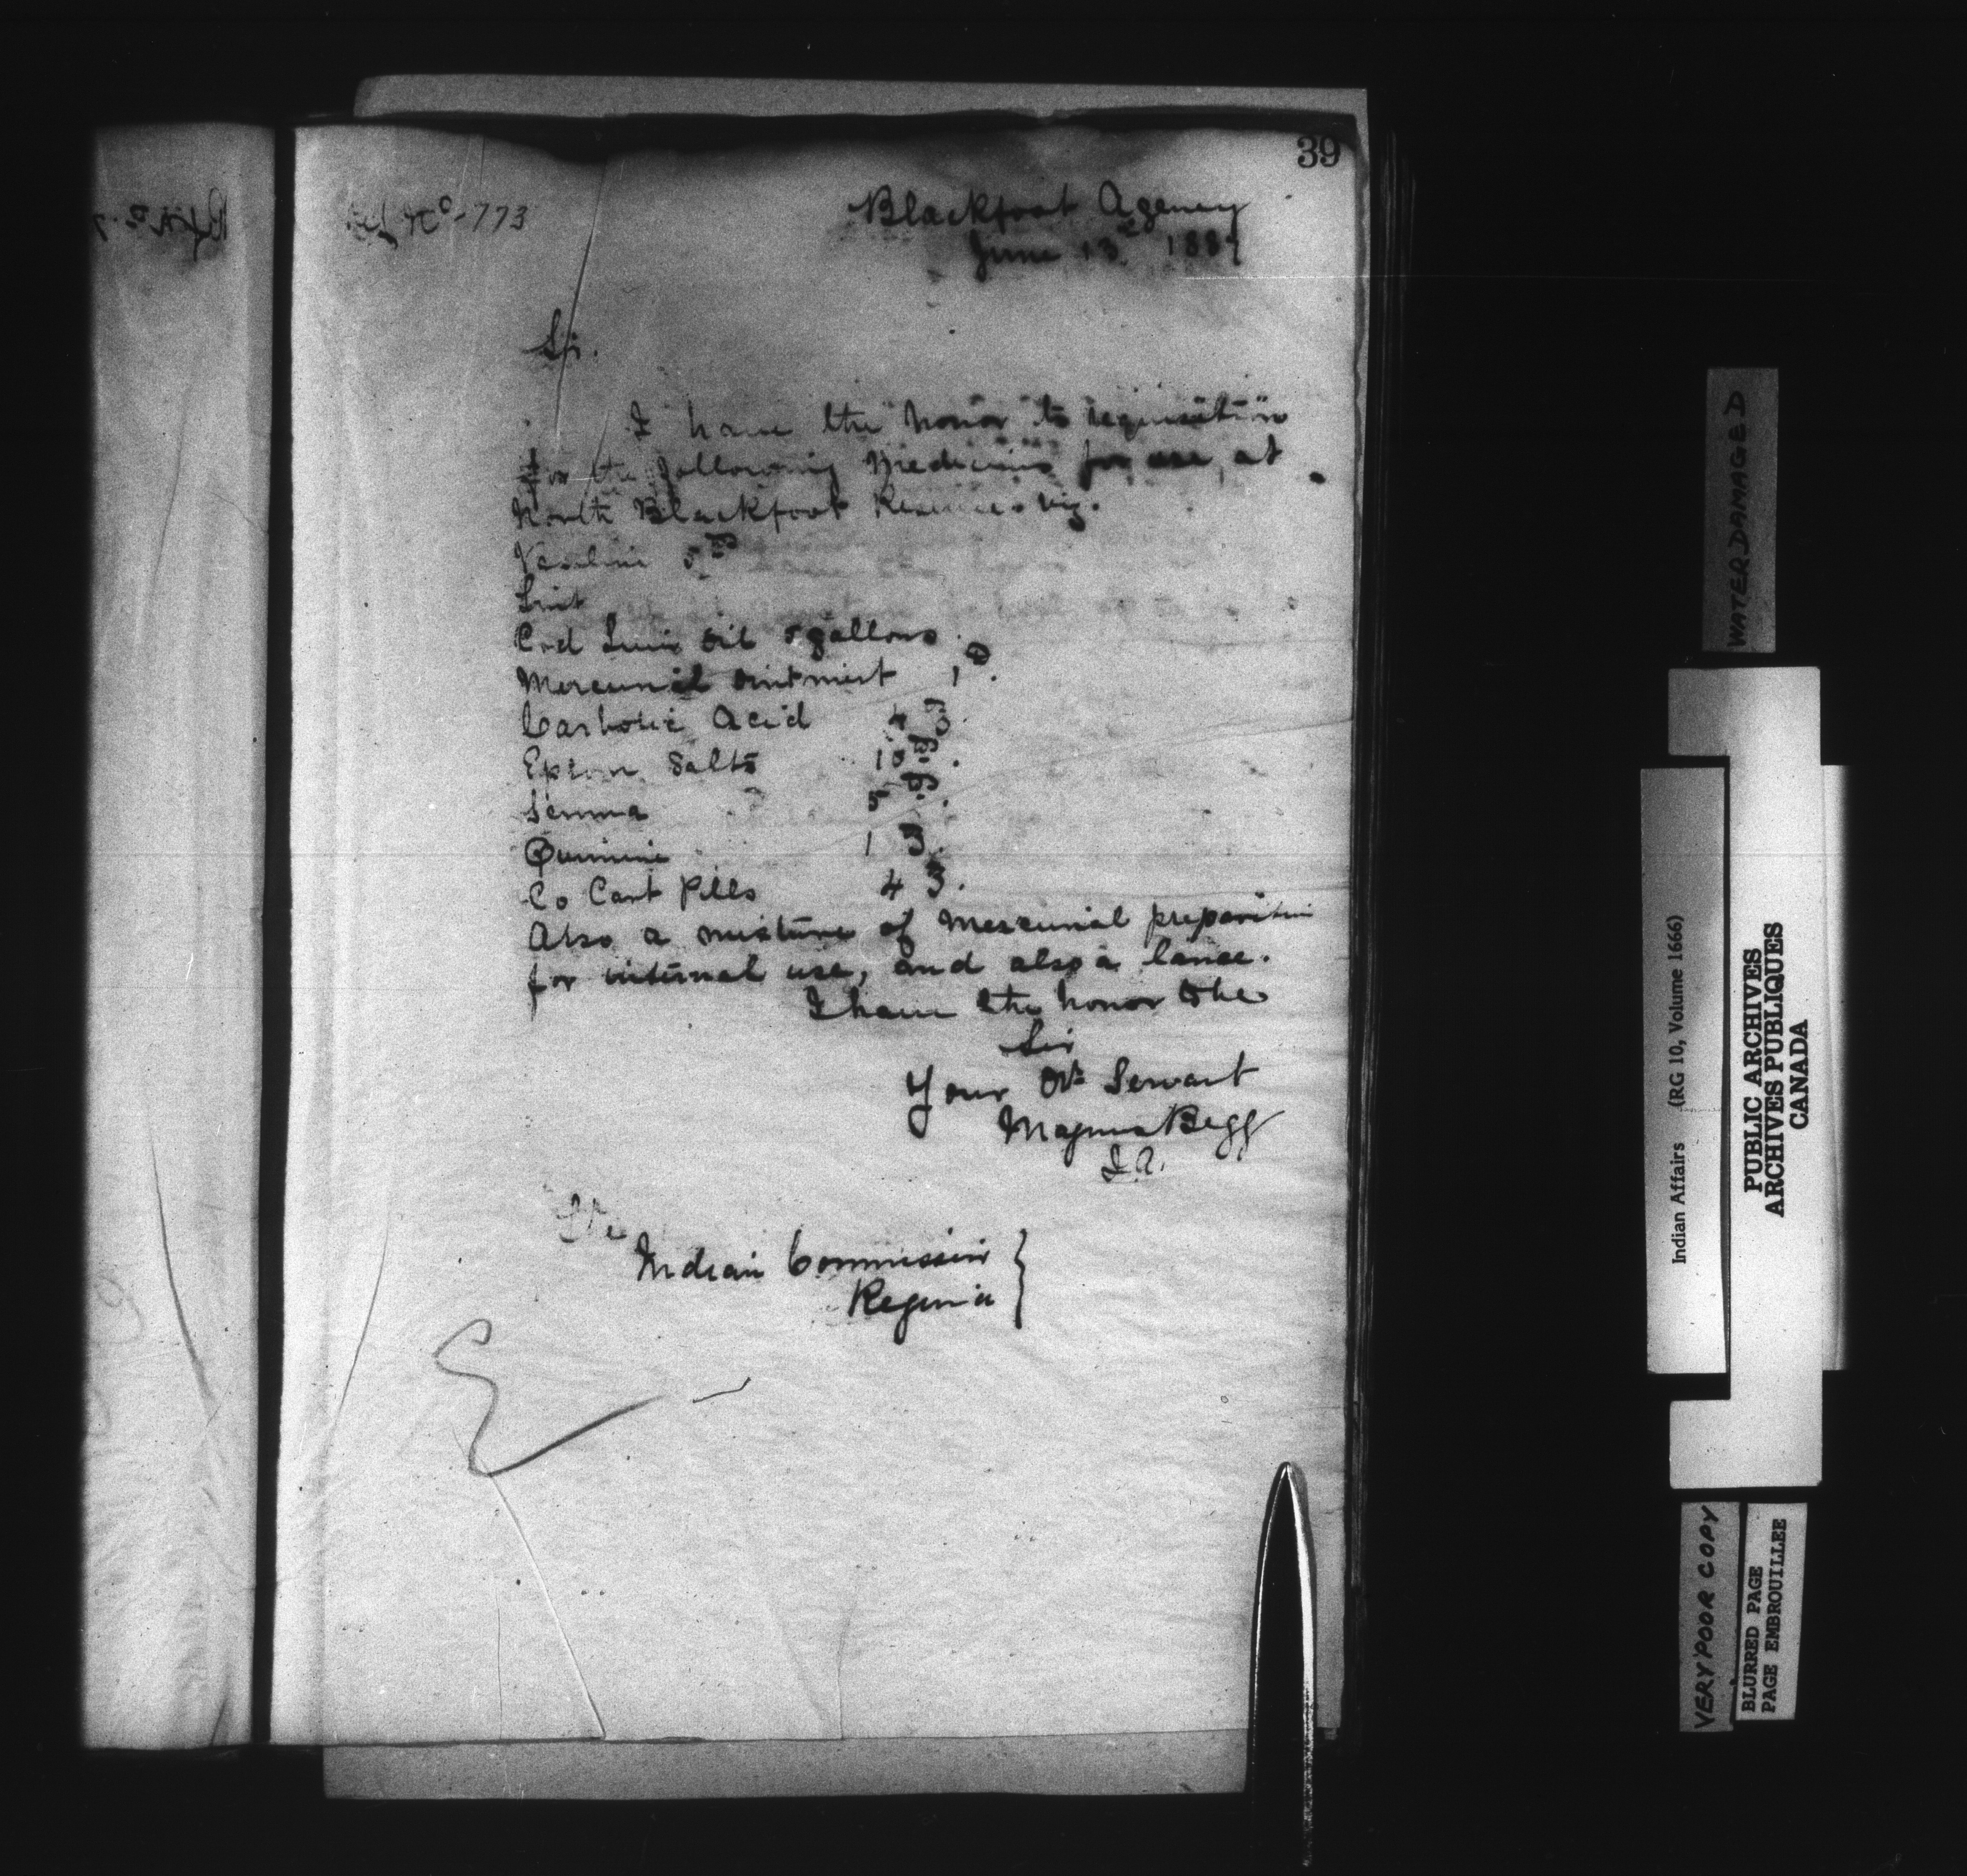 39
Ref No - 773
Blackfoot Agency
June 13th 1887
Sir.
I have the honor to requisition
for the following Medicines for use, at
North Blackfoot Reserve. viz.
Vaseline 5 lb
Lint
Cod Liver Oil 5 gallons.
Mercurial Ointment 1 lb.
Carbolic Acid 4 ℥.
Epsom Salts 10 lb.
Senna 5 lb.
Quinine 1 ℥.
Co Cart Pills 4 ℥.
Also a mixture of Mercurial preparation
for internal use, and also a lance.
I have the honor to be
Sir
Your Obt Servant
Magnus Begg
I.A.
The
Indian Commissioner
Regina
WATER DAMAGED
Indian Affairs (RG 10, Volume 1666)
PUBLIC ARCHIVES
ARCHIVES PUBLIQUES
CANADA
VERY POOR COPY
BLURRED PAGE
PAGE EMBROUILLEE